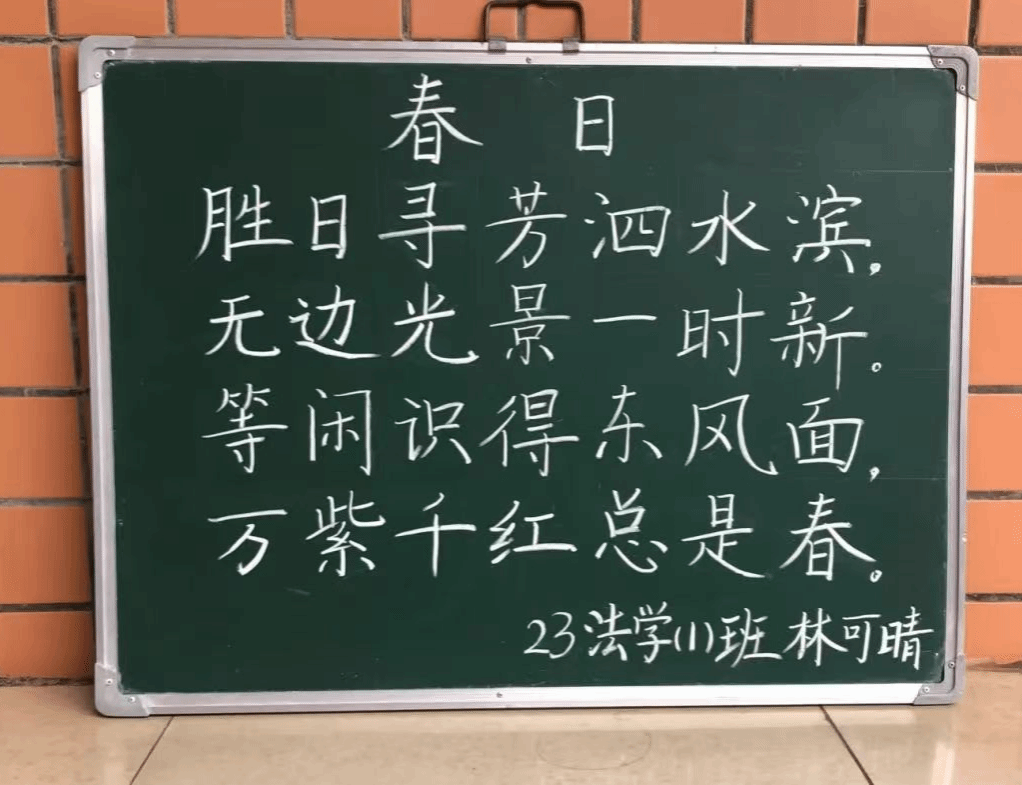 春日
胜日寻芳泗水滨，
无边光景一时新。
等闲识得东风面，
万紫千红总是春。
23法学(1)班 林可晴